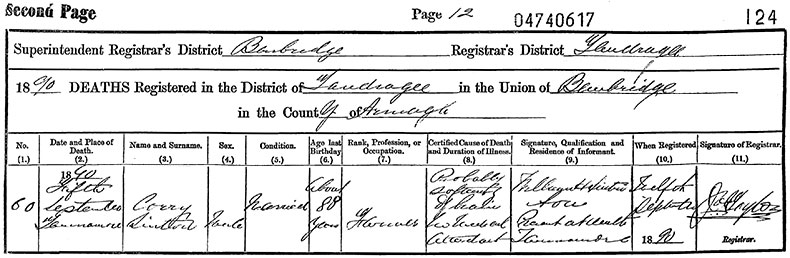 Second Page Page 12 04740617 124
Superintendent Registrar's District Banbridge Registrar's District Tandragee
1890 DEATHS Registered in the District of Tandragee in the Union of Banbridge
in the County of Armagh
No. Date and Place of Death. Name and Surname. Sex. Condition. Age last Birthday Rank, Profession, or Occupation. Certified Cause of Death and Duration of Illness. Signature, Qualification and Residence of Informant. When Registered Signature of Registrar.
(1.) (2.) (3.) (4.) (5.) (6.) (7.) (8.) (9.) (10.) (11.)
60 1890 Fifth September Tamnamore
Sinton
Male
Married
About 88 years
Farmer
Probably softening of brain No Medical Attendant
Sinton Son Present at death
Twelfth Septber 1890
Registrar.